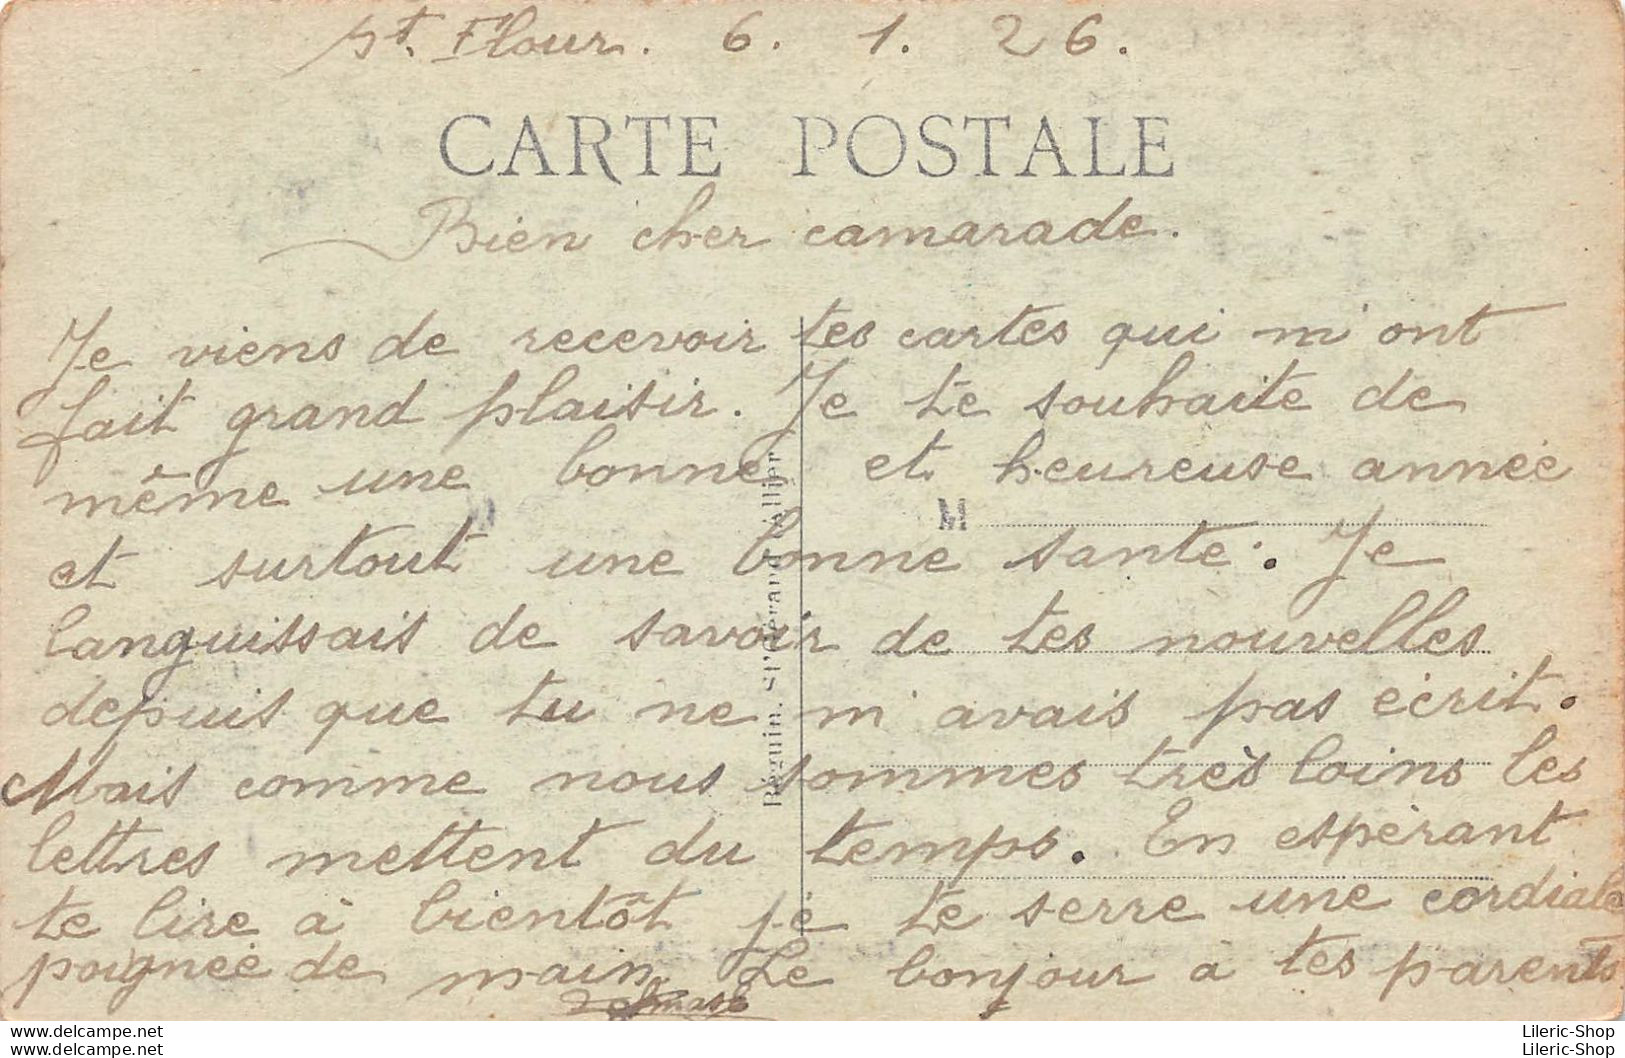 St. Flour. 6. 1. 26.
CARTE POSTALE
Bien cher camarade.
Je viens de recevoir tes cartes qui m'ont
fait grand plaisir. Je te souhaite de
même une bonne et heureuse année
M
et surtout une bonne santé. Je
languissais de savoir de tes nouvelles
depuis que tu ne m'avais pas écrit.
Mais comme nous sommes très loins les
lettres mettent du temps. En espérant
te lire à bientôt je te serre une cordiale
poignée de main. Le bonjour à tes parents
Béguin. St
Lileric-Shop.net
Lileric-Shop.net
Lileric-Shop
Lileric-Shop